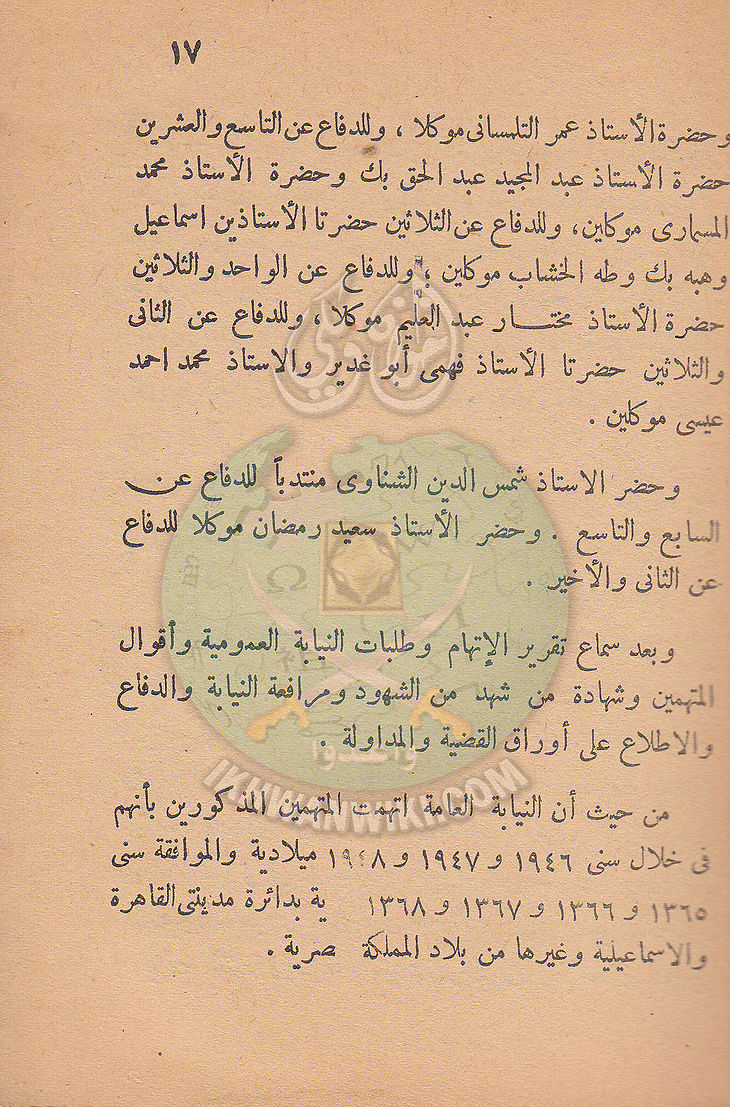 ١٧
وحضرة الأستاذ عمر التلمسانى موكلا ، وللدفاع عن التاسع والعشرين
حضرة الأستاذ عبد المجيد عبد الحق بك وحضرة الأستاذ محمد
المسمارى موكلين، وللدفاع عن الثلاثين حضرتا الأستاذين اسماعيل
وهبه بك وطه الخشاب موكلين ، وللدفاع عن الواحد والثلاثين
حضرة الأستاذ مختار عبد العليم موكلا ، وللدفاع عن الثانى
والثلاثين حضرتا الأستاذ فهمى أبو غدير والاستاذ محمد احمد
عيسى موكلين .
وحضر الاستاذ شمس الدين الشناوى منتدباً للدفاع عن
السابع والتاسع . وحضر الأستاذ سعيد رمضان موكلا للدفاع
عن الثانى والأخير .
وبعد سماع تقرير الإتهام وطلبات النيابة العمومية وأقوال
المتهمين وشهادة من شهد من الشهود ومرافعة النيابة والدفاع
والاطلاع على أوراق القضية والمداولة .
من حيث أن النيابة العامة اتهمت المتهمين المذكورين بأنهم
فى خلال سنى ١٩٤٦ و ١٩٤٧ و ١٩٤٨ ميلادية والموافقة سنى
١٣٦٥ و ١٣٦٦ و ١٣٦٧ و ١٣٦٨ ية بدائرة مدينتى القاهرة
والاسماعيلية وغيرها من بلاد المملكة صرية .
وأعدوا
IKHWANWIKI.COM